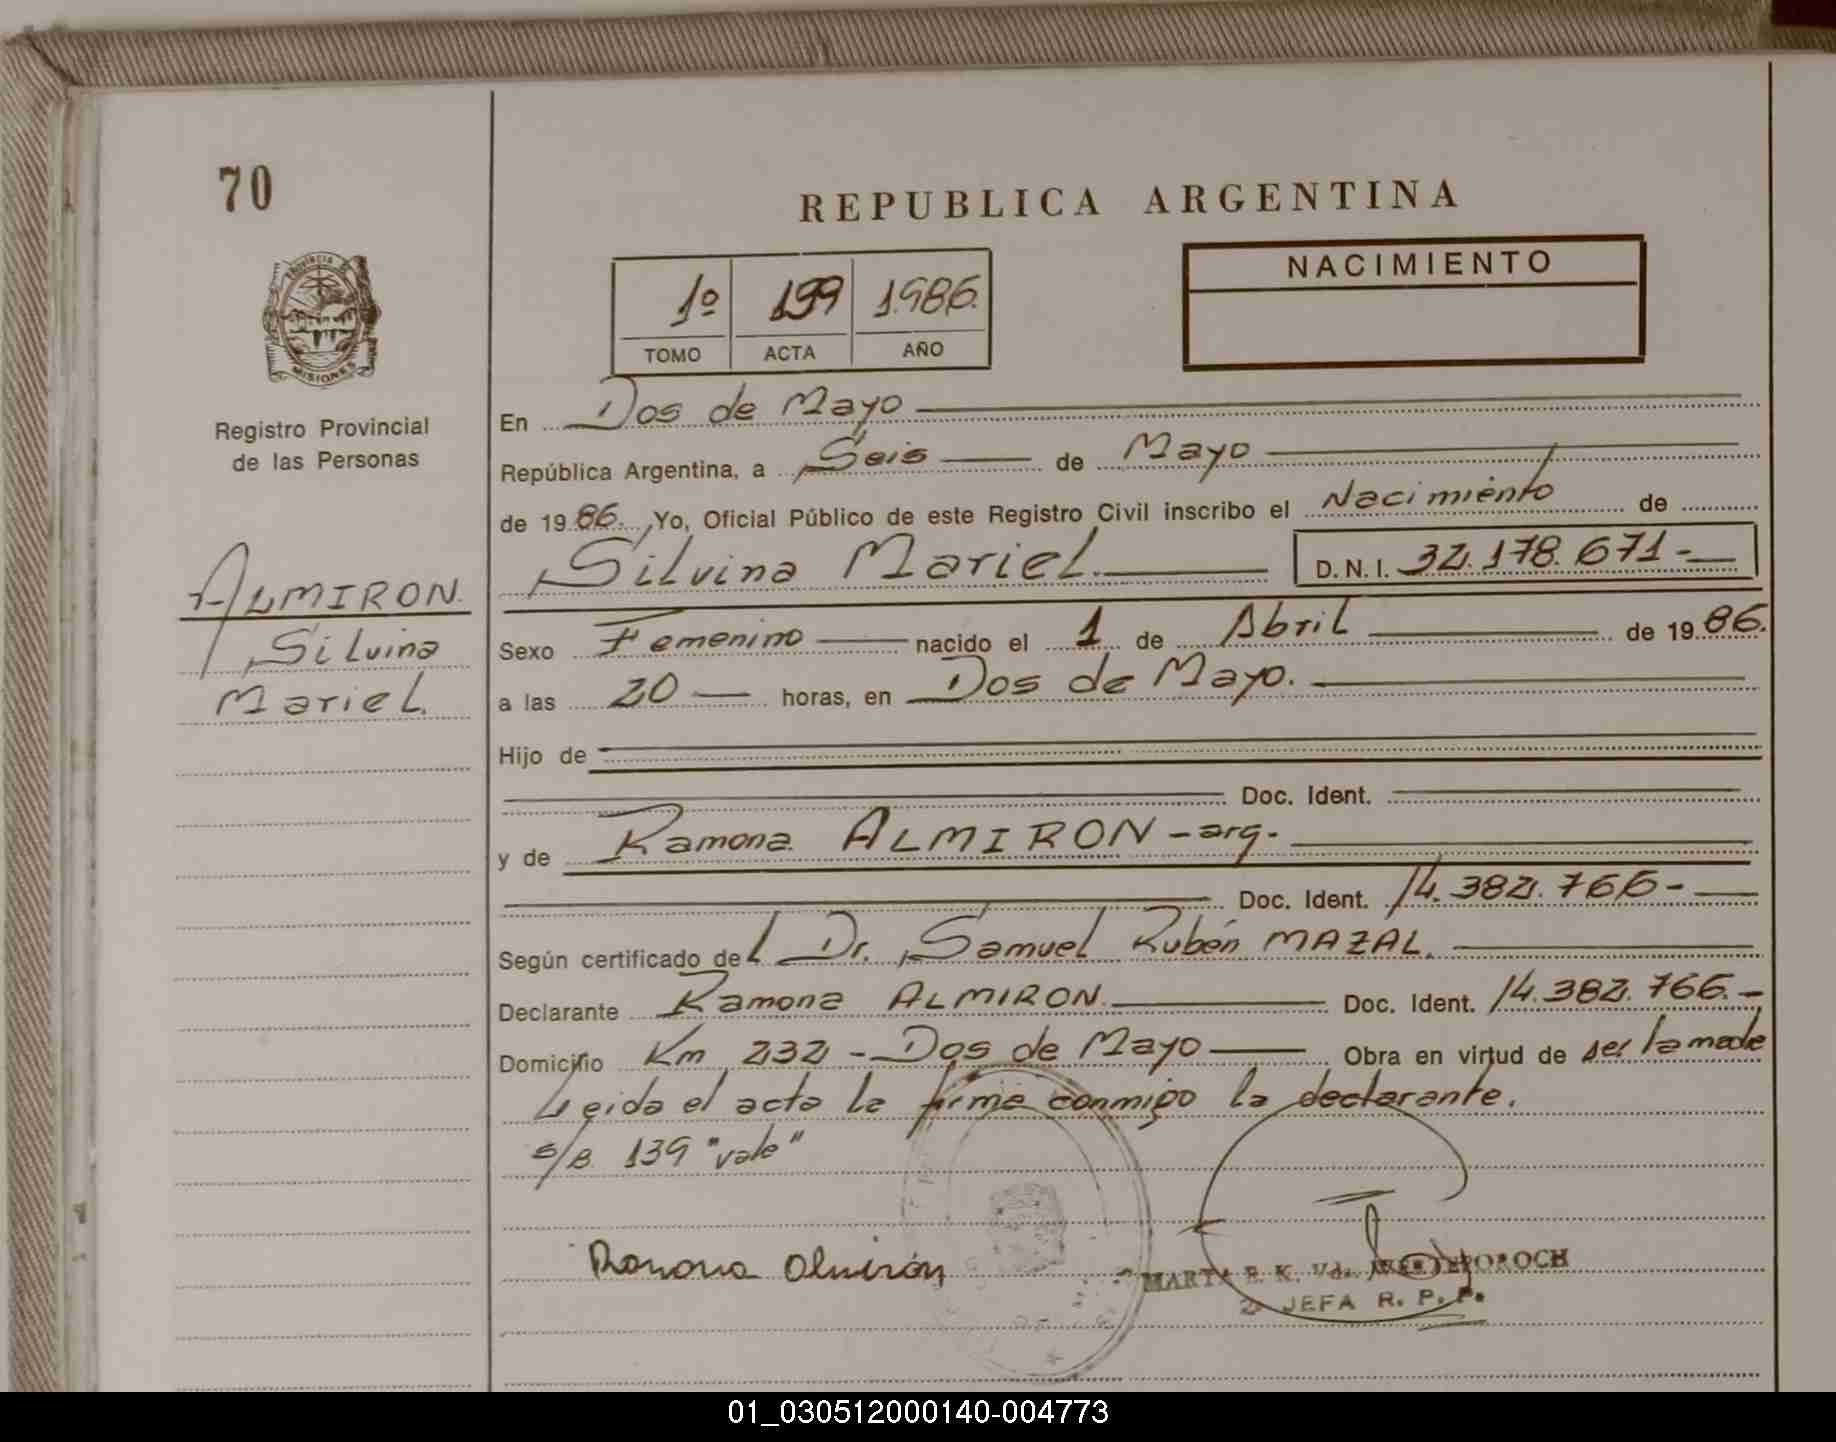 70
REPUBLICA ARGENTINA
PROVINCIA DE
MISIONES
1º 199 1.986.
TOMO ACTA AÑO
NACIMIENTO
Registro Provincial
de las Personas
En Dos de Mayo
República Argentina, a Seis de Mayo
de 19 86. Yo, Oficial Público de este Registro Civil inscribo el Nacimiento de
Silvina Mariel. D.N.I. 32.178.671-
ALMIRON.
Silvina
Mariel.
Sexo Femenino nacido el 1 de Abril de 19 86.
a las 20 horas, en Dos de Mayo.
Hijo de
Doc. Ident.
y de Ramona ALMIRON - arg.
Doc. Ident. 14.382.766-
Según certificado del Dr. Samuel Rubén MAZAL.
Declarante Ramona ALMIRON. Doc. Ident. 14.382.766.-
Domicilio Km 232 - Dos de Mayo Obra en virtud de ser la madre
Leida el acta la firma conmigo la declarante.
s/B. 139 "vale"
Ramona Almirón
MARTA E. K. Vda.
JEFA R. P. P.
01_030512000140-004773